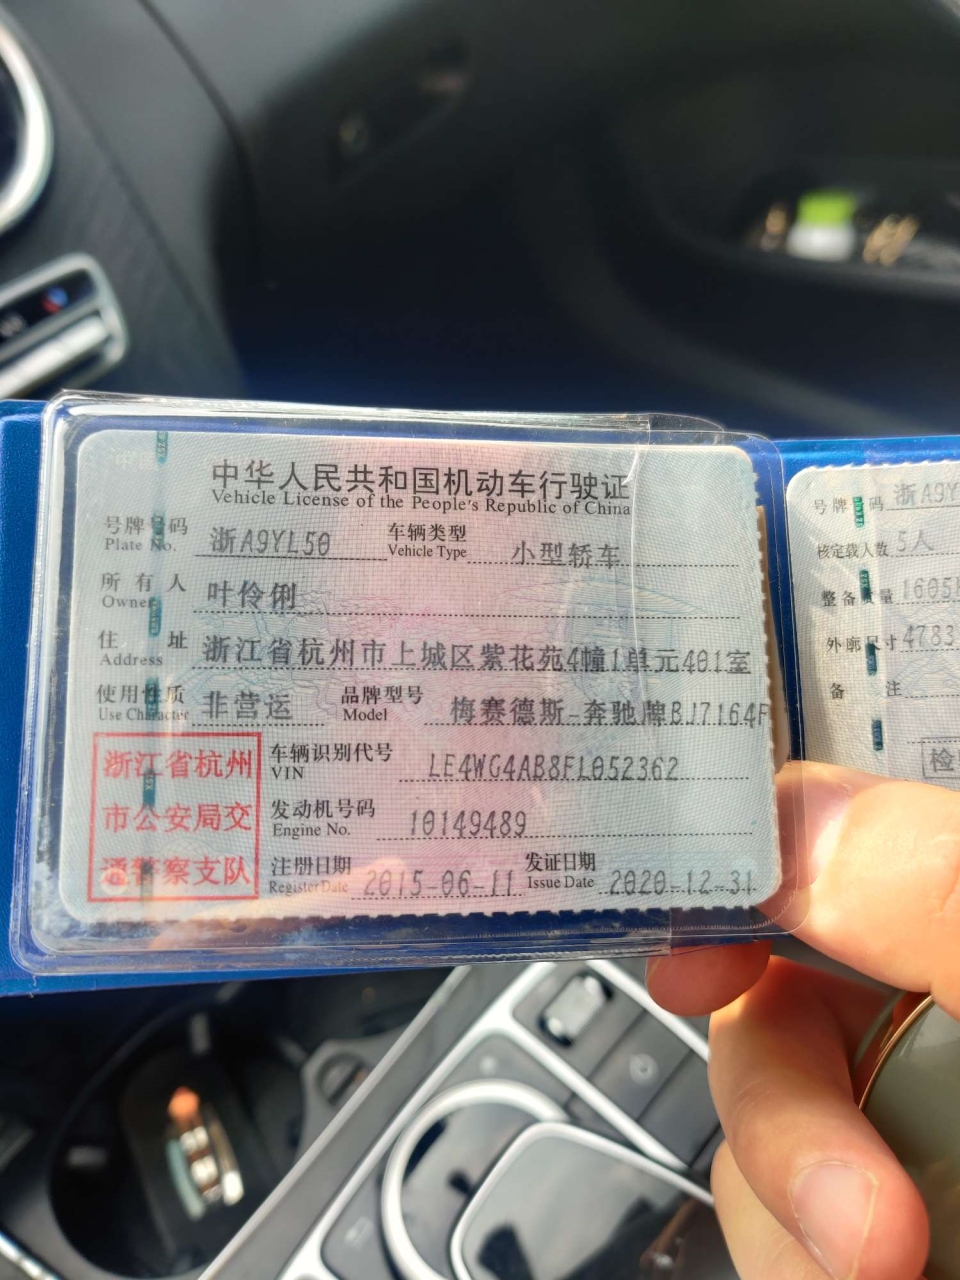 中华人民共和国机动车行驶证
Vehicle License of the People's Republic of China
号牌号码 浙A9YL50 车辆类型 小型轿车
Plate No. Vehicle Type
所有人 叶伶俐
Owner
住址 浙江省杭州市上城区紫花苑4幢1单元401室
Address
使用性质 非营运 品牌型号 梅赛德斯-奔驰牌BJ7164F
Use Character Model
浙江省杭州
市公安局交
通警察支队
车辆识别代号 LE4WG4AB8FL052362
VIN
发动机号码 10149489
Engine No.
注册日期 2015-06-11 发证日期 2020-12-31
Register Date Issue Date
号牌号码 浙A9Y
核定载人数 5人
整备质量 1605
外廓尺寸 4783
备注
检